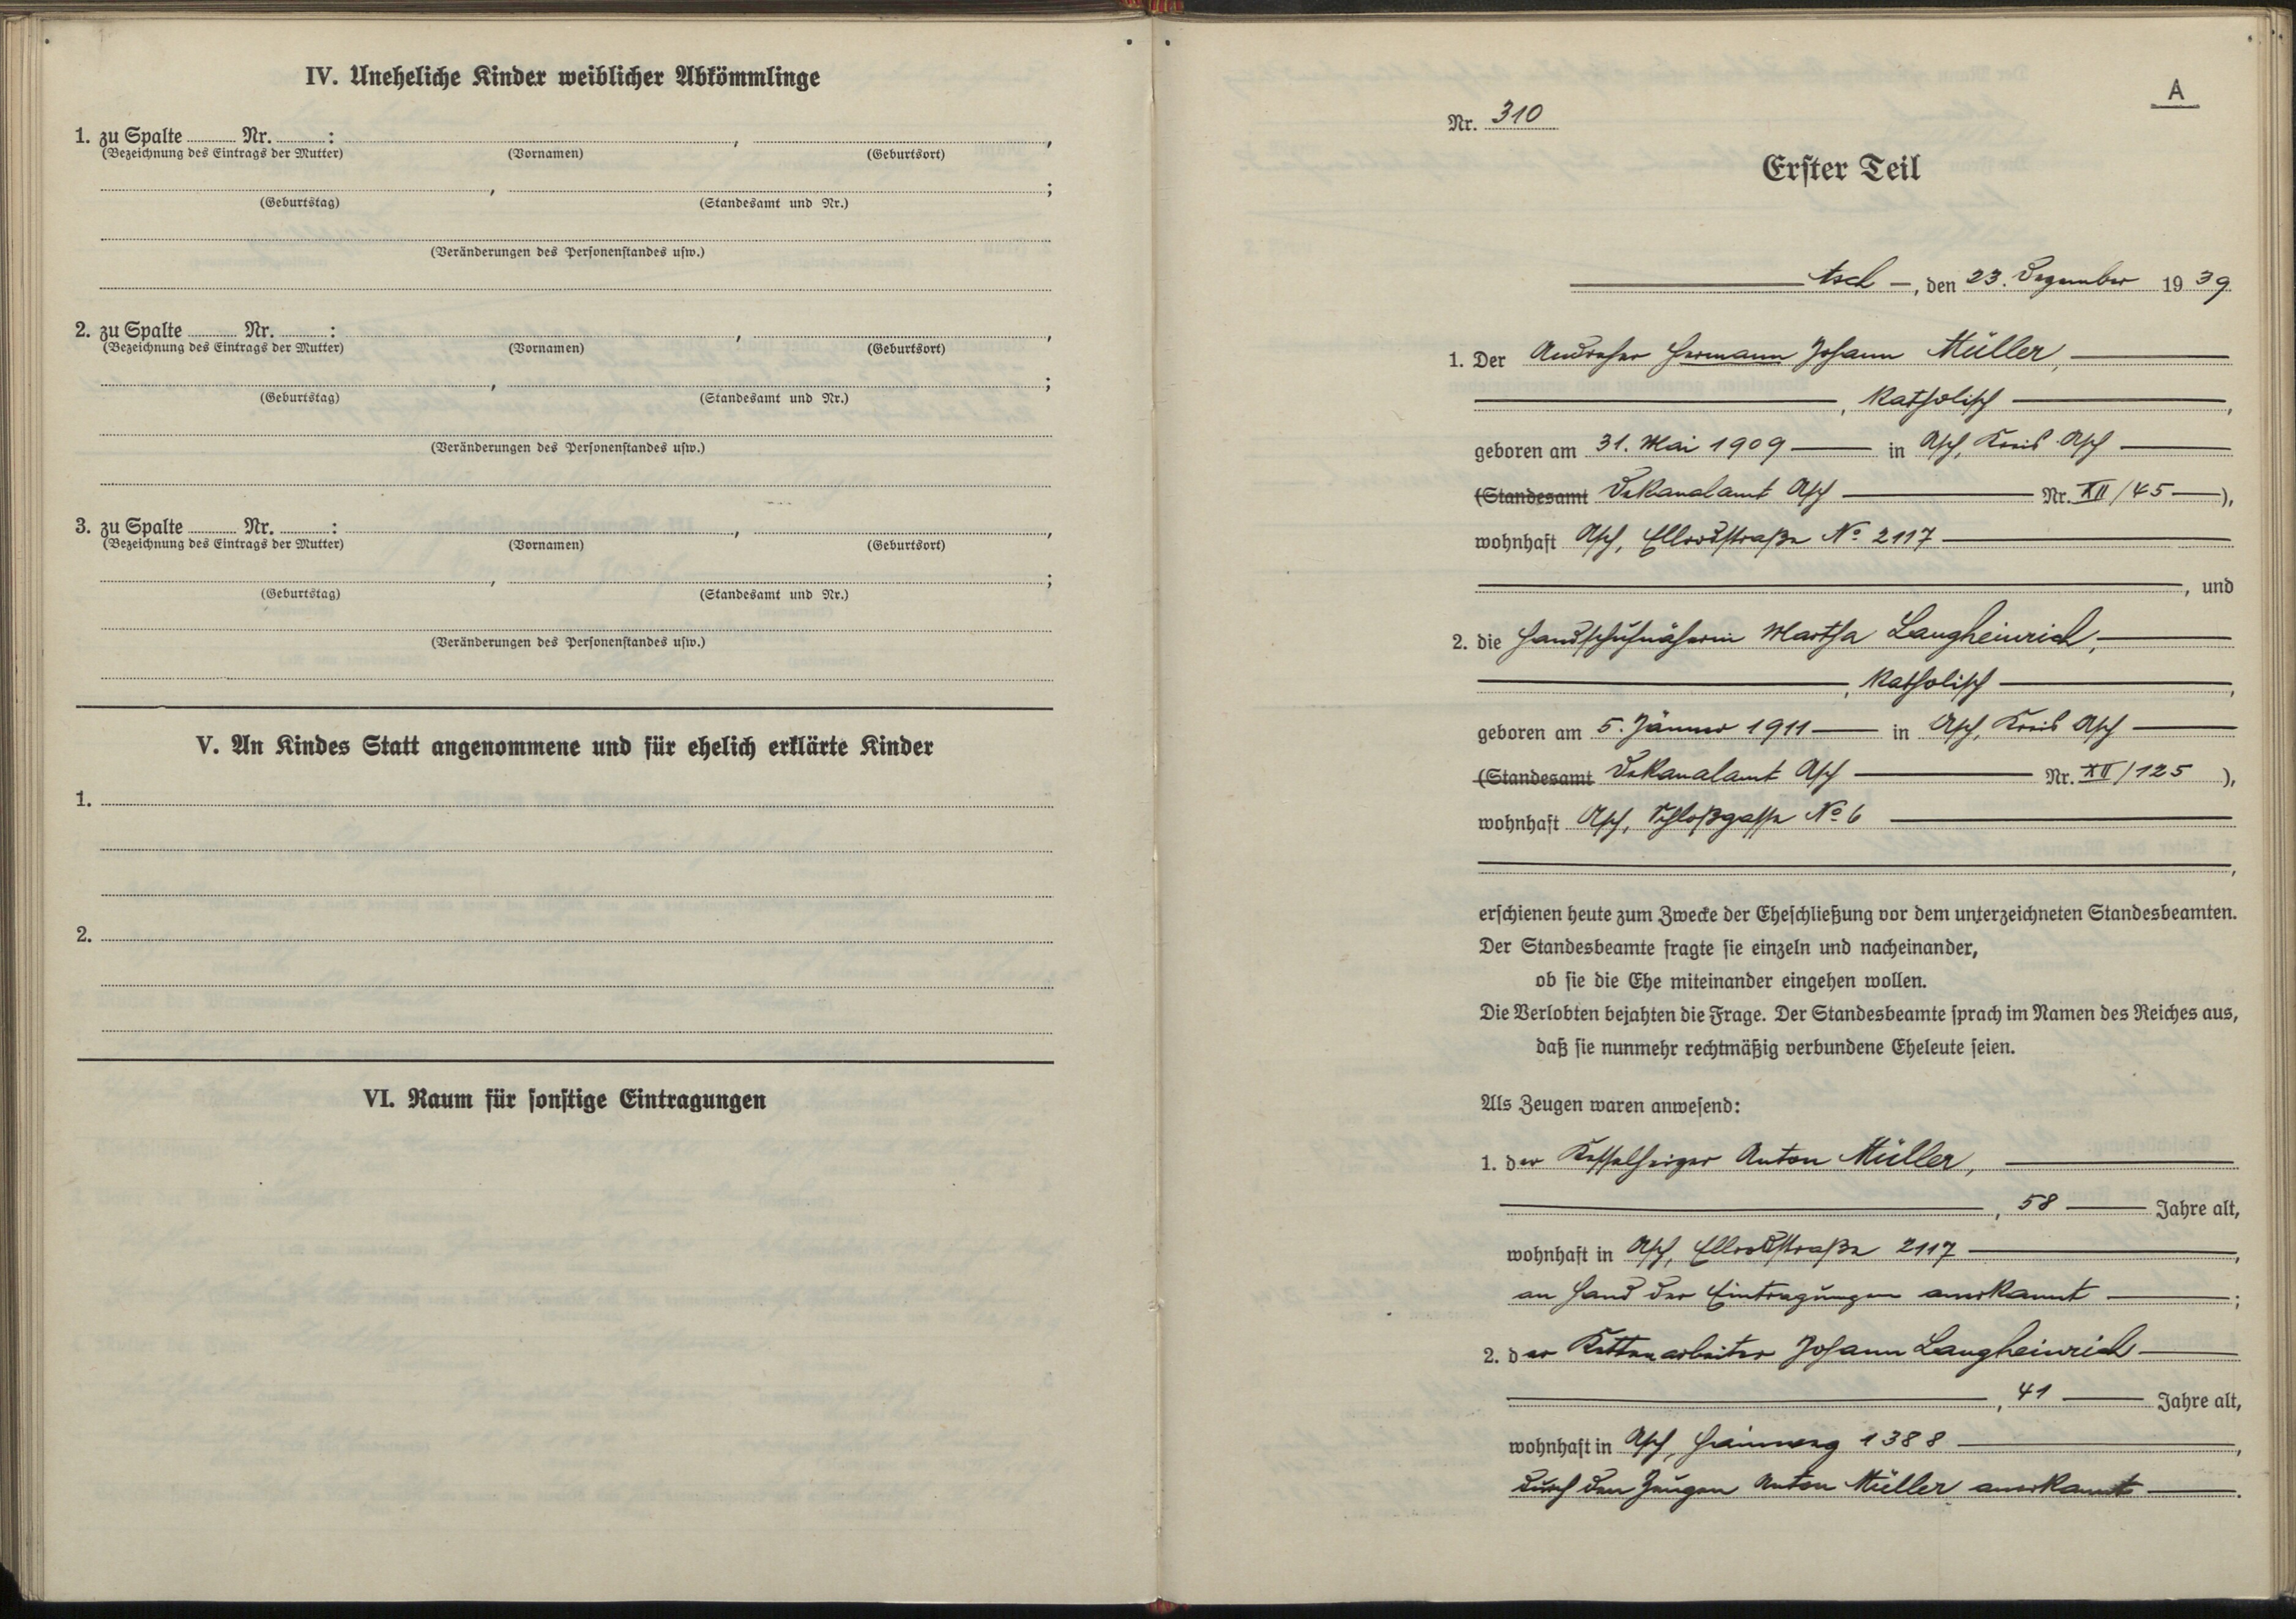 IV. Uneheliche Kinder weiblicher Abkömmlinge
1. zu Spalte Nr. : , ,
(Bezeichnung des Eintrags der Mutter) (Vornamen) (Geburtsort)
, ;
(Geburtstag) (Standesamt und Nr.)
(Veränderungen des Personenstandes usw.)
2. zu Spalte Nr. : , ,
(Bezeichnung des Eintrags der Mutter) (Vornamen) (Geburtsort)
, ;
(Geburtstag) (Standesamt und Nr.)
(Veränderungen des Personenstandes usw.)
3. zu Spalte Nr. : , ,
(Bezeichnung des Eintrags der Mutter) (Vornamen) (Geburtsort)
, ;
(Geburtstag) (Standesamt und Nr.)
(Veränderungen des Personenstandes usw.)
V. An Kindes Statt angenommene und für ehelich erklärte Kinder
1.
2.
VI. Raum für sonstige Eintragungen
A
Nr. 310
Erster Teil
Asch —, den 23. Dezember 1939
1. Der Andreher Hermann Johann Müller,
, katholisch ,
geboren am 31. Mai 1909 in Asch, Kreis Asch
(Standesamt Dekanalamt Asch Nr. XII/45 ),
wohnhaft Asch, Ellrodstraße No 2117
, und
2. die Handschuhnäherin Martha Langheinrich,
, katholisch ,
geboren am 5. Jänner 1911 in Asch, Kreis Asch
(Standesamt Dekanalamt Asch Nr. XII/125 ),
wohnhaft Asch, Schloßgasse No 6
,
erschienen heute zum Zwecke der Eheschließung vor dem unterzeichneten Standesbeamten.
Der Standesbeamte fragte sie einzeln und nacheinander,
ob sie die Ehe miteinander eingehen wollen.
Die Verlobten bejahten die Frage. Der Standesbeamte sprach im Namen des Reiches aus,
daß sie nunmehr rechtmäßig verbundene Eheleute seien.
Als Zeugen waren anwesend:
1. der Kesselheizer Anton Müller,
, 58 Jahre alt,
wohnhaft in Asch, Ellrodstraße 2117 ,
an Hand der Eintragungen anerkannt ;
2. der Kettenarbeiter Johann Langheinrich
, 41 Jahre alt,
wohnhaft in Asch, Hainweg 1388 ,
durch den Zeugen Anton Müller anerkannt .